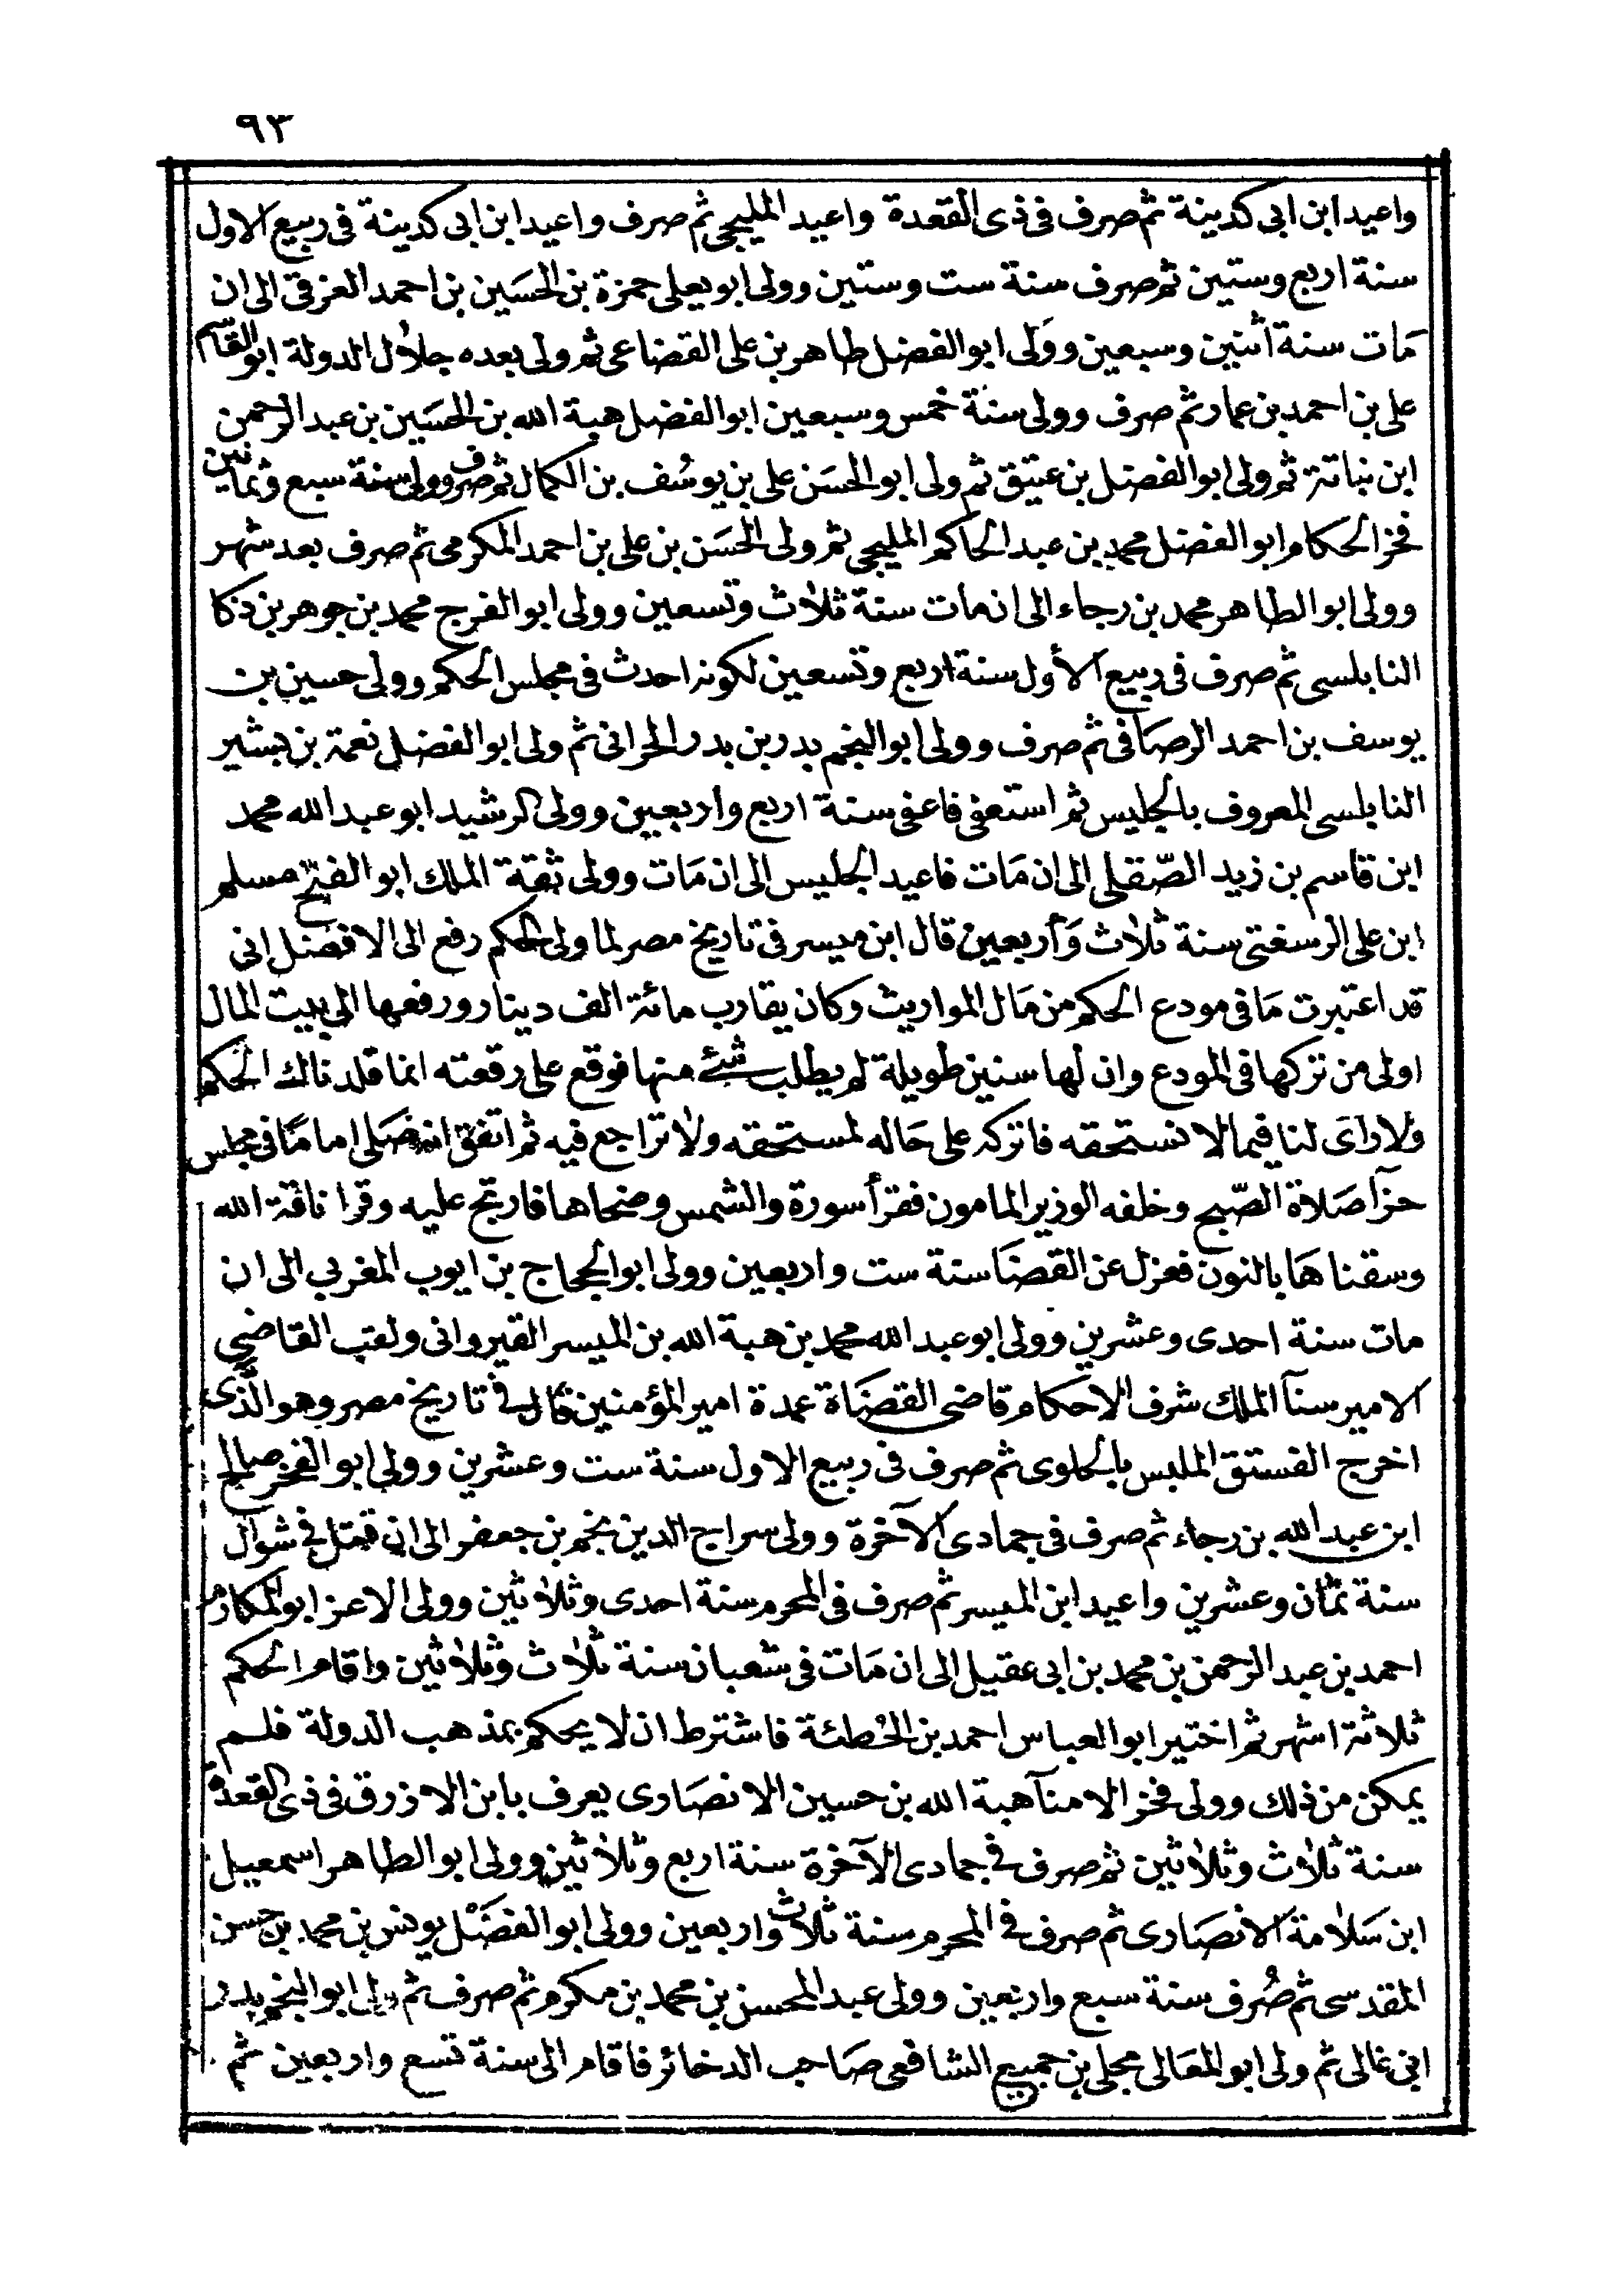 ٩٣
واعيد ابن ابى كدينة ثم صرف فى ذى القعدة واعيد المليجى ثم صرف واعيد ابن ابى كدينة فى ربيع الاول
سنة اربع وستين ثم صرف سنة ست وستين وولى ابو يعلى حمزة بن الحسَين بن احمد العزقى الى ان
مَات سنة اثنين وسبعين ووَلى ابو الفضل طاهر بن على القضاعى ثم ولى بعده جلال الدولة ابو القاسم
على بن احمد بن عمار ثم صرف وولى سنة خمس وسبعين ابو الفضل هبة الله بن الحسَين بن عبد الرحمن
ابن نباتة ثم ولى ابو الفضل بن عتيق ثم ولى ابو الحسَن على بن يوسُف بن الكمال ثم صرف وولى سنة سبع وثمانين
فخر الحكام ابو الفضل محمد بن عبد الحاكم المليجى ثم ولى الحسَن بن على بن احمد المكرمى ثم صرف بعد شهر
وولى ابو الطاهر محمد بن رجاء الى ان مات سنة ثلاث وتسعين وولى ابو الفرج محمد بن جوهر بن ذكا
النابلسى ثم صرف فى ربيع الأول سنة اربع وتسعين لكونه احدث فى مجلس الحكم وولى حسين بن
يوسف بن احمد الرصافى ثم صرف وولى ابو النجم بدر بن بدر الحرانى ثم ولى ابو الفضل نعمة بن بشير
النابلسى المعروف بالجليس ثم استعفى فاعفى سنة اربع واربعين وولى الرشيد ابو عبد الله محمد
ابن قاسم بن زيد الصّقلى الى ان مَات فاعيد الجليس الى ان مَات وولى ثقة الملك ابو الفتح مسلم
ابن على الرسغنى سنة ثلاث وَأربعين قال ابن ميسر فى تاريخ مصر لما ولى الحكم رفع الى الافضل انى
قد اعتبرت مَا فى مودع الحكم من مَال المواريث وكان يقارب مائة الف دينار ورفعها الى بيت المال
اولى من تركها فى المودع وان لها سنين طويلة لم يطلب شئ منها فوقع على رقعته انما قلدناك الحكم
ولا راى لنا فيما لا نستحقه فاتركه على حَاله لمستحقه ولا تراجع فيه ثم اتفق انه صَلى اماما فى مجلس
حزآ صَلاة الصّبح وخلفه الوزير المامون فقرأ سورة والشمس وضحاها فارتج عليه وقرا ناقة الله
وسقناهَا بالنون فعزل عن القضَا سنة ست واربعين وولى ابو الحجاج بن ايوب المغربى الى ان
مات سنة احدى وعشرين وولى ابو عبد الله محمد بن هبة الله بن الميسر القيروانى ولقب القاضى
الامير سنآ الملك شرف الاحكام قاضى القضَاة عمدة امير المؤمنين قال فى تاريخ مصر وهو الذَّى
اخرج الفستق الملبس بالحلوى ثم صرف فى ربيع الاول سنة ست وعشرين وولى ابو الفخر صالح
ابن عبد الله بن رجاء ثم صرف فى جمادى الآخرة وولى سراج الدين نجم بن جعفر الى ان قتل فى شوال
سنة ثمان وعشرين واعيد ابن الميسر ثم صرف فى المحرم سنة احدى وثلاثين وولى الاعز ابو المكارم
احمد بن عبد الرحمن بن محمد بن ابى عقيل الى ان مَات فى شعبان سنة ثلاث وثلاثين واقام الحكم
ثلاثة اشهر ثم اختير ابو العباس احمد بن الحطئة فاشترط ان لا يحكم بمذهب الدولة فلم
يمكن من ذلك وولى فخر الامنآ هبة الله بن حسين الانصَارى يعرف بابن الازرق فى ذى القعدة
سنة ثلاث وثلاثين ثم صرف فى جمادى الآخرة سنة اربع وثلاثين وولى ابو الطاهر اسمعيل
ابن سَلامة الانصَارى ثم صرف فى المحرم سنة ثلاث واربعين وولى ابو الفضَل يونس بن محمد بن حسن
المقدسى ثم صُرف سنة سبع واربعين وولى عبد المحسن بن محمد بن مكرم ثم صرف ثم ولى ابو النجم بدر
ابن غالى ثم ولى ابو المعَالى مجلى بن جميع الشافعى صَاحب الدخائر فاقام الى سنة تسع واربعين ثم